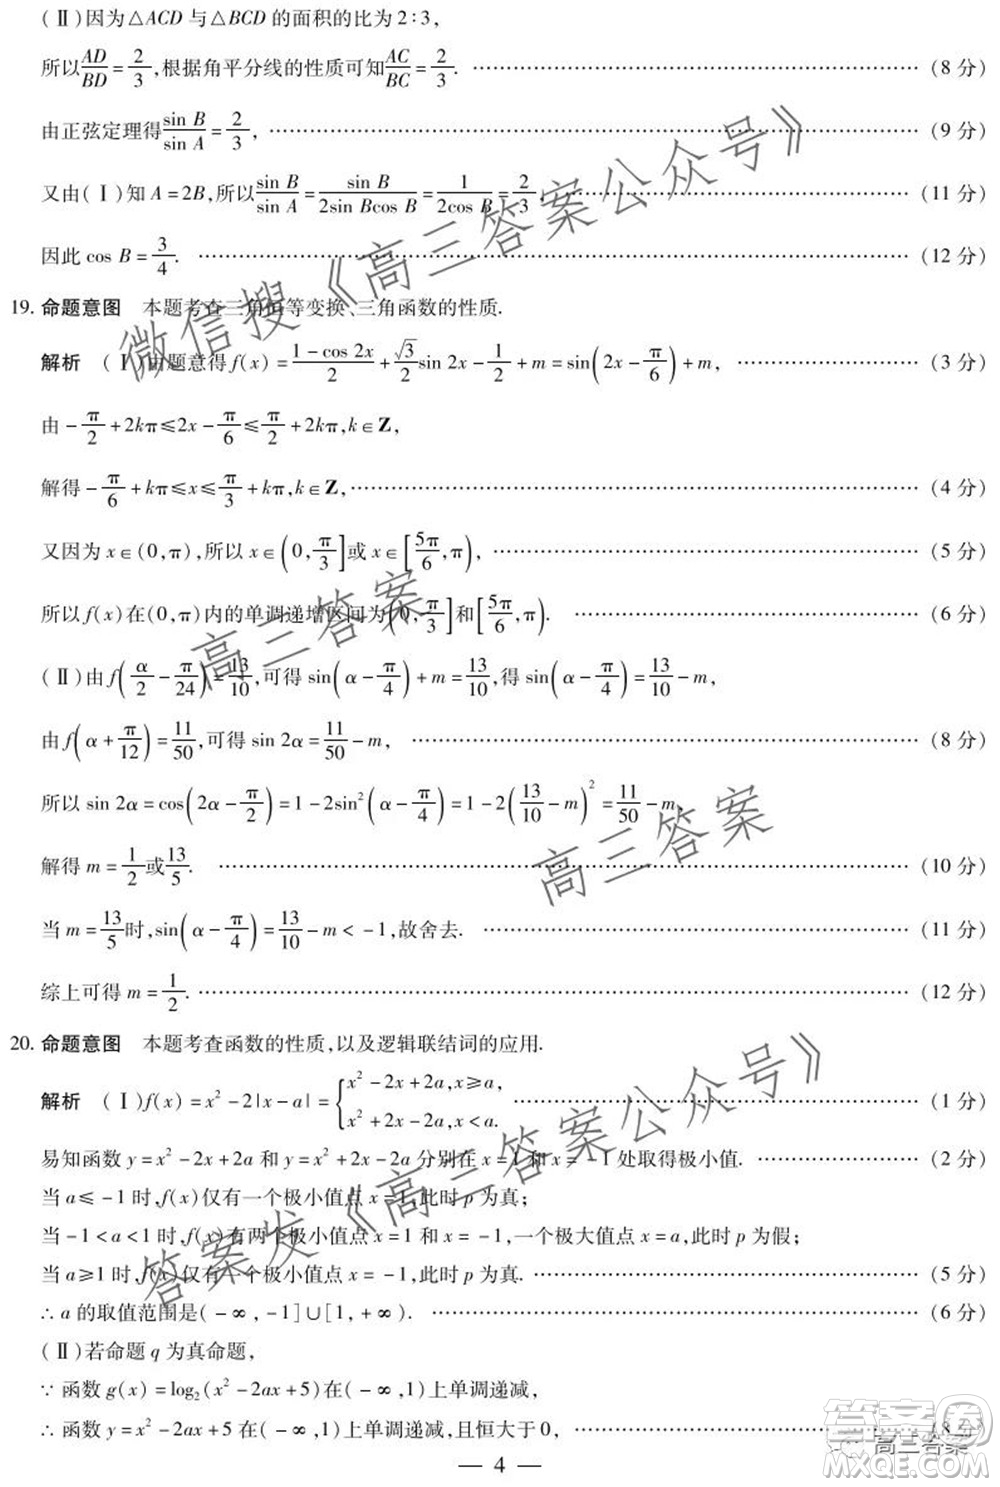 (Ⅱ)因为△ACD 与△BCD 的面积的比为 2:3,
所以AD/BD=2/3,根据角平分线的性质可知AC/BC=2/3. ……………………(8 分)
由正弦定理得sin B/sin A=2/3, ……………………(9 分)
又由(Ⅰ)知 A=2B,所以sin B/sin A=sin B/2sin Bcos B=1/2cos B=2/3, ……………………(11 分)
因此 cos B=3/4. ……………………(12 分)
19. 命题意图 本题考查三角恒等变换、三角函数的性质.
解析 (Ⅰ)由题意得 f(x)=(1-cos 2x)/2+(√3/2)sin 2x-1/2+m=sin(2x-π/6)+m, ……………………(3 分)
由 -π/2+2kπ≤2x-π/6≤π/2+2kπ,k∈Z,
解得-π/6+kπ≤x≤π/3+kπ,k∈Z, ……………………(4 分)
又因为 x∈(0,π),所以 x∈(0,π/3]或 x∈[5π/6,π), ……………………(5 分)
所以 f(x)在(0,π)内的单调递增区间为(0,π/3]和[5π/6,π). ……………………(6 分)
(Ⅱ)由 f(α/2-π/24)=13/10,可得 sin(α-π/4)+m=13/10,得 sin(α-π/4)=13/10-m,
由 f(α+π/12)=11/50,可得 sin 2α=11/50-m, ……………………(8 分)
所以 sin 2α=cos(2α-π/2)=1-2sin²(α-π/4)=1-2(13/10-m)²=11/50-m,
解得 m=1/2或13/5. ……………………(10 分)
当 m=13/5时,sin(α-π/4)=13/10-m<-1,故舍去. ……………………(11 分)
综上可得 m=1/2. ……………………(12 分)
20. 命题意图 本题考查函数的性质,以及逻辑联结词的应用.
解析 (Ⅰ)f(x)=x²-2|x-a|={x²-2x+2a,x≥a, x²+2x-2a,x<a. ……………………(1 分)
易知函数 y=x²-2x+2a 和 y=x²+2x-2a 分别在 x=1 和 x=-1 处取得极小值. ……………………(2 分)
当 a≤-1 时,f(x)仅有一个极小值点 x=1,此时 p 为真;
当 -1<a<1 时,f(x)有两个极小值点 x=1 和 x=-1,一个极大值点 x=a,此时 p 为假;
当 a≥1 时,f(x)仅有一个极小值点 x=-1,此时 p 为真. ……………………(5 分)
∴ a 的取值范围是(-∞,-1]∪[1,+∞). ……………………(6 分)
(Ⅱ)若命题 q 为真命题,
∵ 函数 g(x)=log₂(x²-2ax+5)在(-∞,1)上单调递减,
∴ 函数 y=x²-2ax+5 在(-∞,1)上单调递减,且恒大于 0, ……………………(8 分)
— 4 —
微信搜《高三答案公众号》
高三答案
高三答案
答案发《高三答案公众号》
答案圈
高三答案